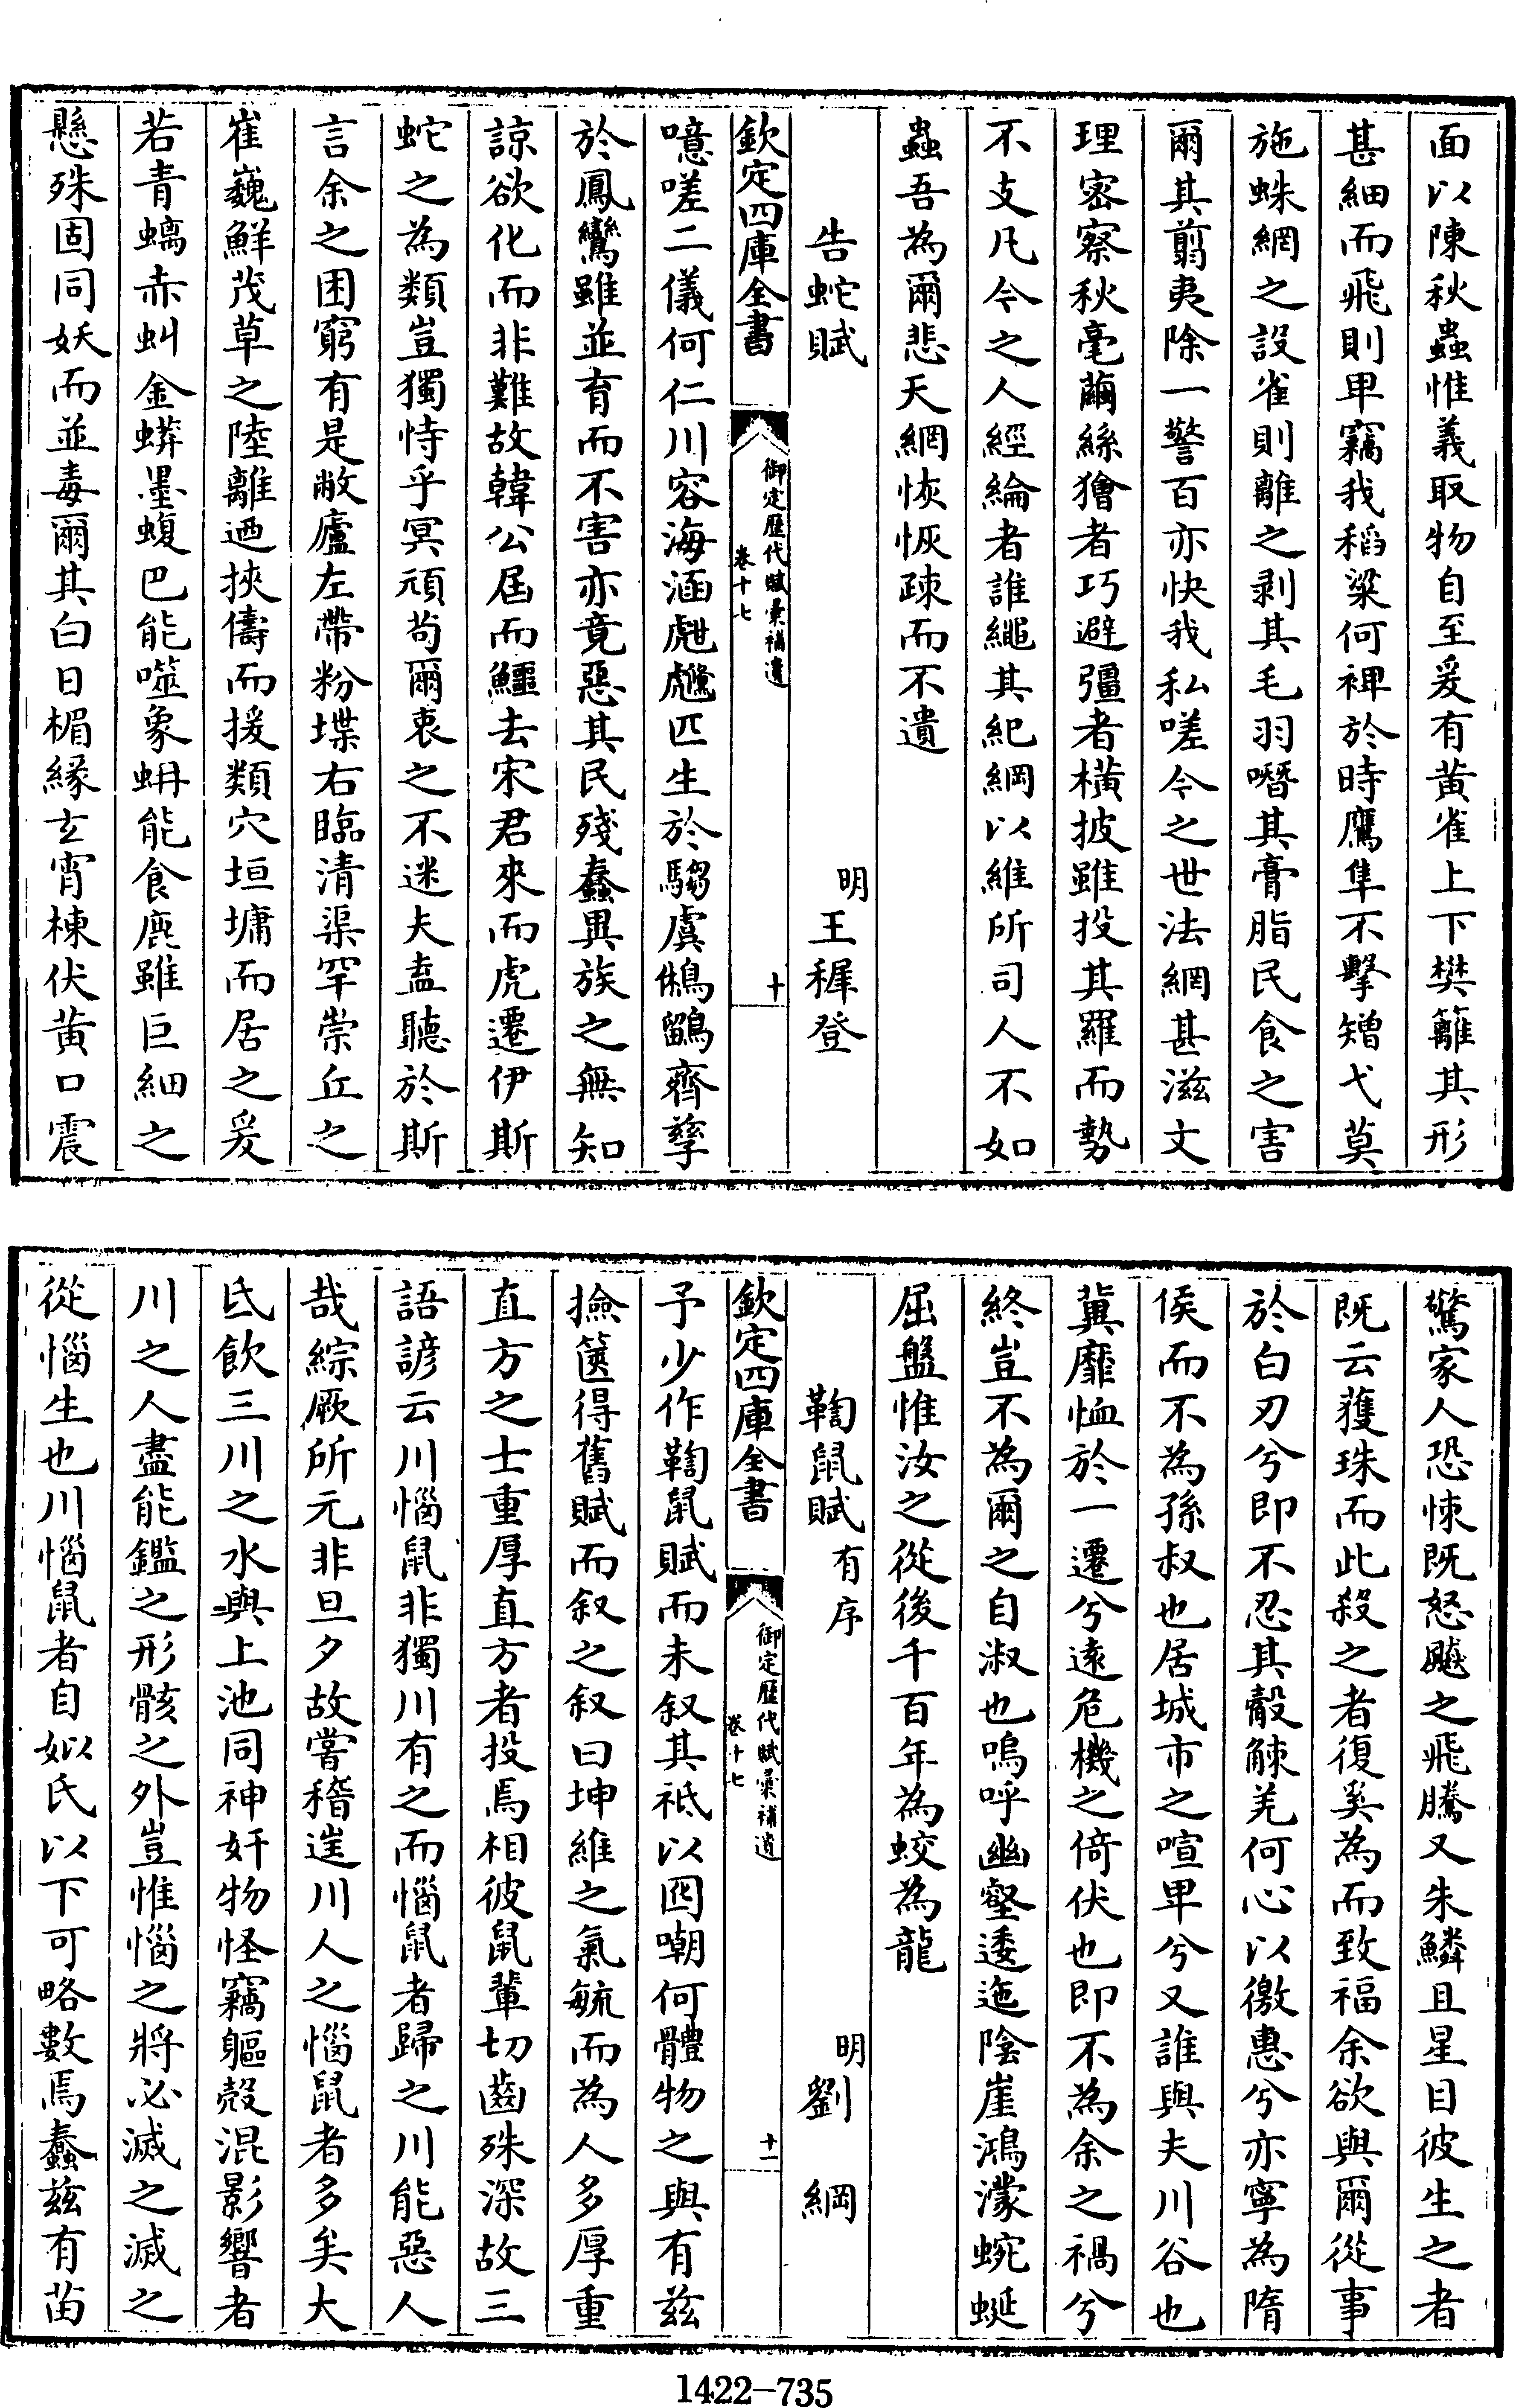 面以陳秋蟲惟義取物自至爰有黃雀上下樊籬其形
甚細而飛則卑竊我稻粱何裨於時鷹隼不擊矰弋莫
施蛛網之設雀則離之剥其毛羽噆其膏脂民食之害
爾其翦夷除一警百亦快我私嗟今之世法網甚滋文
理密察秋毫繭絲獪者巧避彊者橫披雖投其羅而勢
不支凡今之人經綸者誰繩其紀綱以維所司人不如
蟲吾為爾悲天網恢恢疎而不遺
告蛇賦 明王穉登
欽定四庫全書 御定歷代賦彙補遺 卷十七 十
噫嗟二儀何仁川容海涵虺彪匹生於騶虞鵂鶹齊孳
於鳳鸞雖並育而不害亦竟惡其民殘蠢異族之無知
諒欲化而非難故韓公屆而鱷去宋君來而虎遷伊斯
蛇之為類豈獨恃乎冥頑苟爾衷之不迷夫盍聽於斯
言余之困窮有是敝廬左帶粉堞右臨清渠罕崇丘之
崔巍鮮茂草之陸離迺挾儔而援類穴垣墉而居之爰
若青螭赤虯金蟒墨蝮巴能噬象蚺能食鹿雖巨細之
懸殊固同妖而並毒爾其白日楣緣玄宵棟伏黃口震
驚家人恐悚既怒颷之飛騰又朱鱗且星目彼生之者
既云獲珠而此殺之者復奚為而致福余欲與爾從事
於白刃兮即不忍其觳觫羌何心以徼惠兮亦寧為隋
侯而不為孫叔也居城市之喧卑兮又誰與夫川谷也
冀靡恤於一遷兮遠危機之倚伏也即不為余之禍兮
終豈不為爾之自淑也嗚呼幽壑逶迤陰崖鴻濛蜿蜒
屈盤惟汝之從後千百年為蛟為龍
鞫鼠賦 有序 明劉綱
欽定四庫全書 御定歷代賦彙補遺 卷十七 十一
予少作鞫鼠賦而未叙其祗以因嘲何體物之與有兹
撿篋得舊賦而叙之叙曰坤維之氣毓而為人多厚重
直方之士重厚直方者投焉相彼鼠輩切齒殊深故三
語諺云川惱鼠非獨川有之而惱鼠者歸之川能惡人
哉綜厥所元非旦夕故嘗稽逹川人之惱鼠者多矣大
氐飲三川之水與上池同神奸物怪竊軀殼混影響者
川之人盡能鑑之形骸之外豈惟惱之將必滅之滅之
從惱生也川惱鼠者自姒氏以下可略數焉蠢兹有苗
1422-735